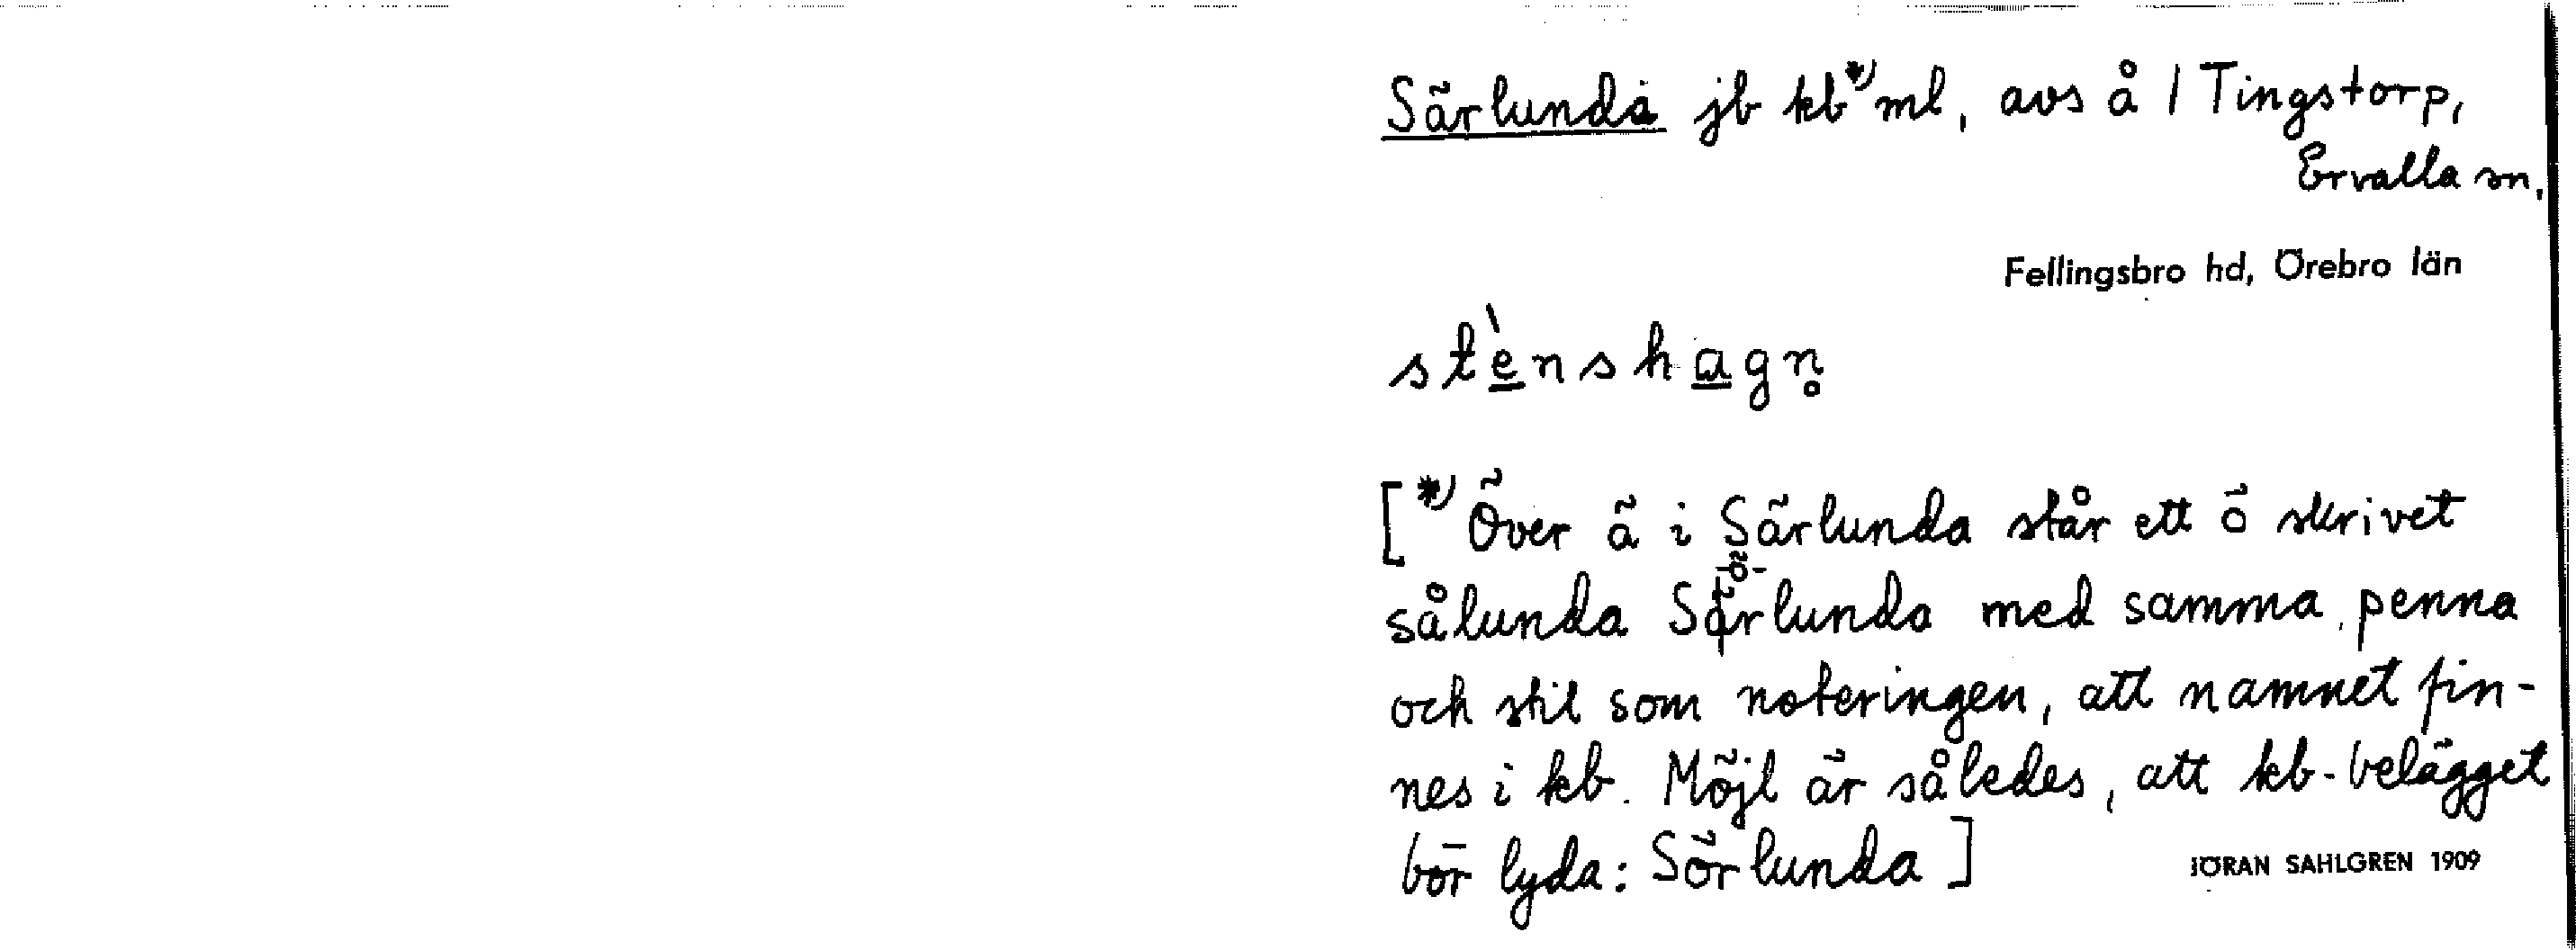 Särlunda jb kb*) ml, avs å / Tingstorp,
Ervalla sn,
Fellingsbro hd, Örebro län
stènshagn̥
[*) Över ä i Särlunda står ett ö skrivet
sålunda Särlunda med samma penna
och stil som noteringen, att namnet fin-
nes i kb. Möjl är således, att kb-belägget
bör lyda: Sörlunda]
JÖRAN SAHLGREN 1909